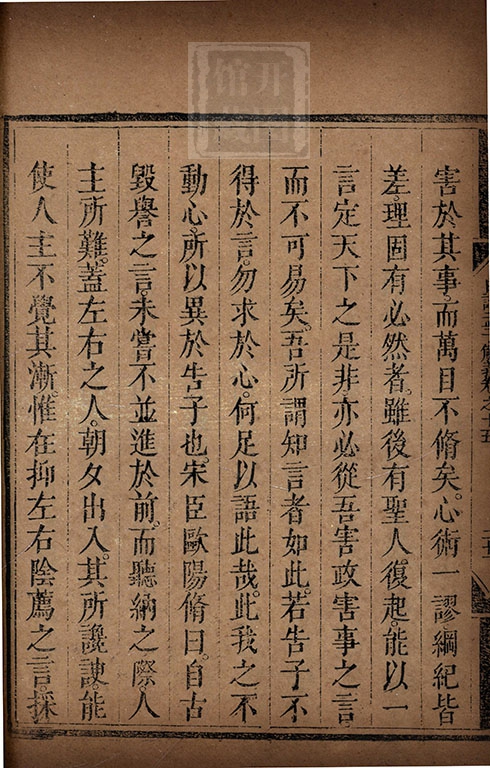 害於其事。而萬目不脩矣。心術一謬。綱紀皆
差。理固有必然者。雖後有聖人。復起。能以一
言定天下之是非。亦必從吾害政害事之言
而不可易矣。吾所謂知言者如此。若告子不
得於言。勿求於心。何足以語此哉。此我之不
動心。所以異於告子也。宋臣歐陽脩曰。自古
毀譽之言。未嘗不並進於前。而聽納之際。人
主所難。蓋左右之人。朝夕出入。其所讒諛。能
使人主不覺其漸。惟在抑左右陰薦之言。採